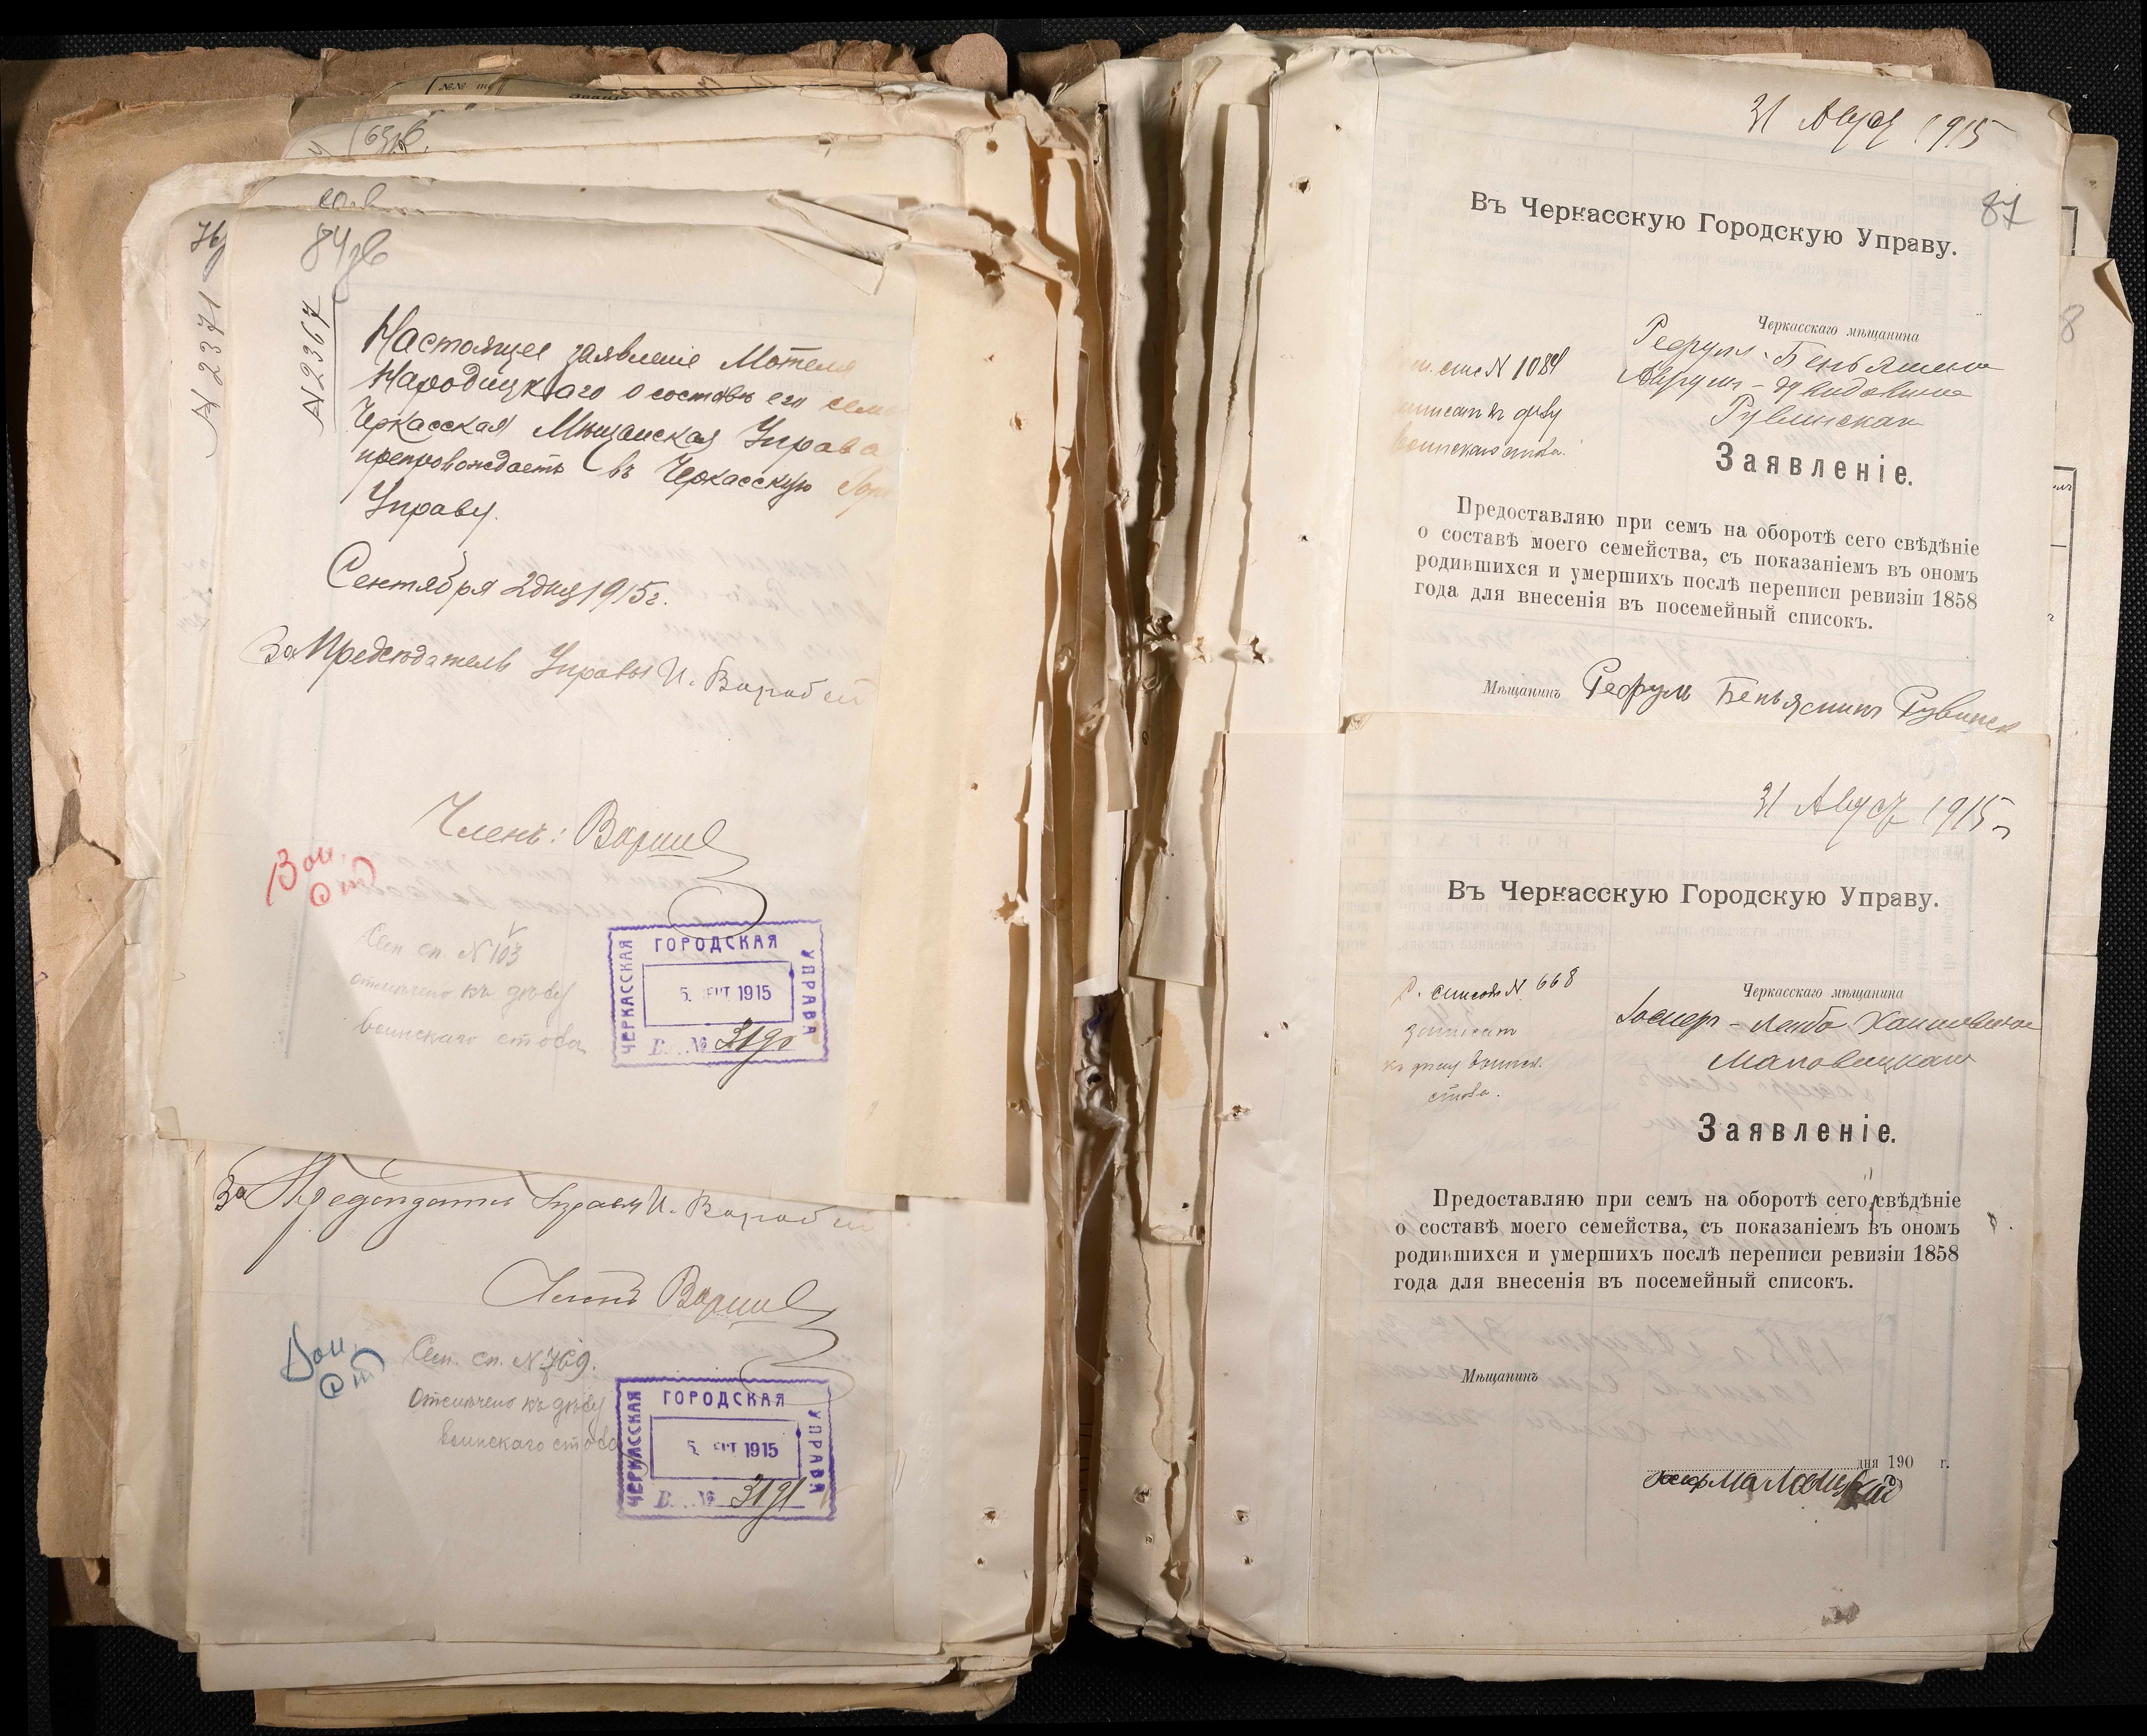 84 зв
N 2371
N 2367
Настоящее заявленіе Мотеля
Народицкаго о составѣ его семь
Черкасская Мѣщанская Управа
препровождаетъ въ Черкасскую Гор
Управу.
Сентября 2 дня 1915 г.
За Предсѣдатель Управы И. Воробей
Членъ:
Вои.
От
Сем. сп. N 103
отмѣчено къ дѣлу
воинскаго стола
ЧЕРКАССКАЯ ГОРОДСКАЯ УПРАВА
5. СЕНТ 1915
В. № 3190
За Предсѣдатель Управы И. Воробей
Членъ
Вои.
От
Сем. сп. N 769.
Отмѣчено къ дѣлу
воинскаго стола
ЧЕРКАССКАЯ ГОРОДСКАЯ УПРАВА
5. СЕНТ 1915
В. № 3191
31 Авг 1915
87
Въ Черкасскую Городскую Управу.
Черкасскаго мѣщанина
спис N 1084
къ дѣлу
воинскаго стола.
Заявленіе.
Предоставляю при семъ на оборотѣ сего свѣдѣніе
о составѣ моего семейства, съ показаніемъ въ ономъ
родившихся и умершихъ послѣ переписи ревизіи 1858
года для внесенія въ посемейный списокъ.
Мѣщанинъ Рефулъ Беньяминъ Рувинск
8
31 Авг 1915 г
Въ Черкасскую Городскую Управу.
Черкасскаго мѣщанина
списокъ N 668
записан
къ дѣлу воинск.
стола.
Лейба Хаимовича
Маловицкаго
Заявленіе.
Предоставляю при семъ на оборотѣ сего свѣдѣніе
о составѣ моего семейства, съ показаніемъ въ ономъ
родившихся и умершихъ послѣ переписи ревизіи 1858
года для внесенія въ посемейный списокъ.
Мѣщанинъ
дня 190 г.